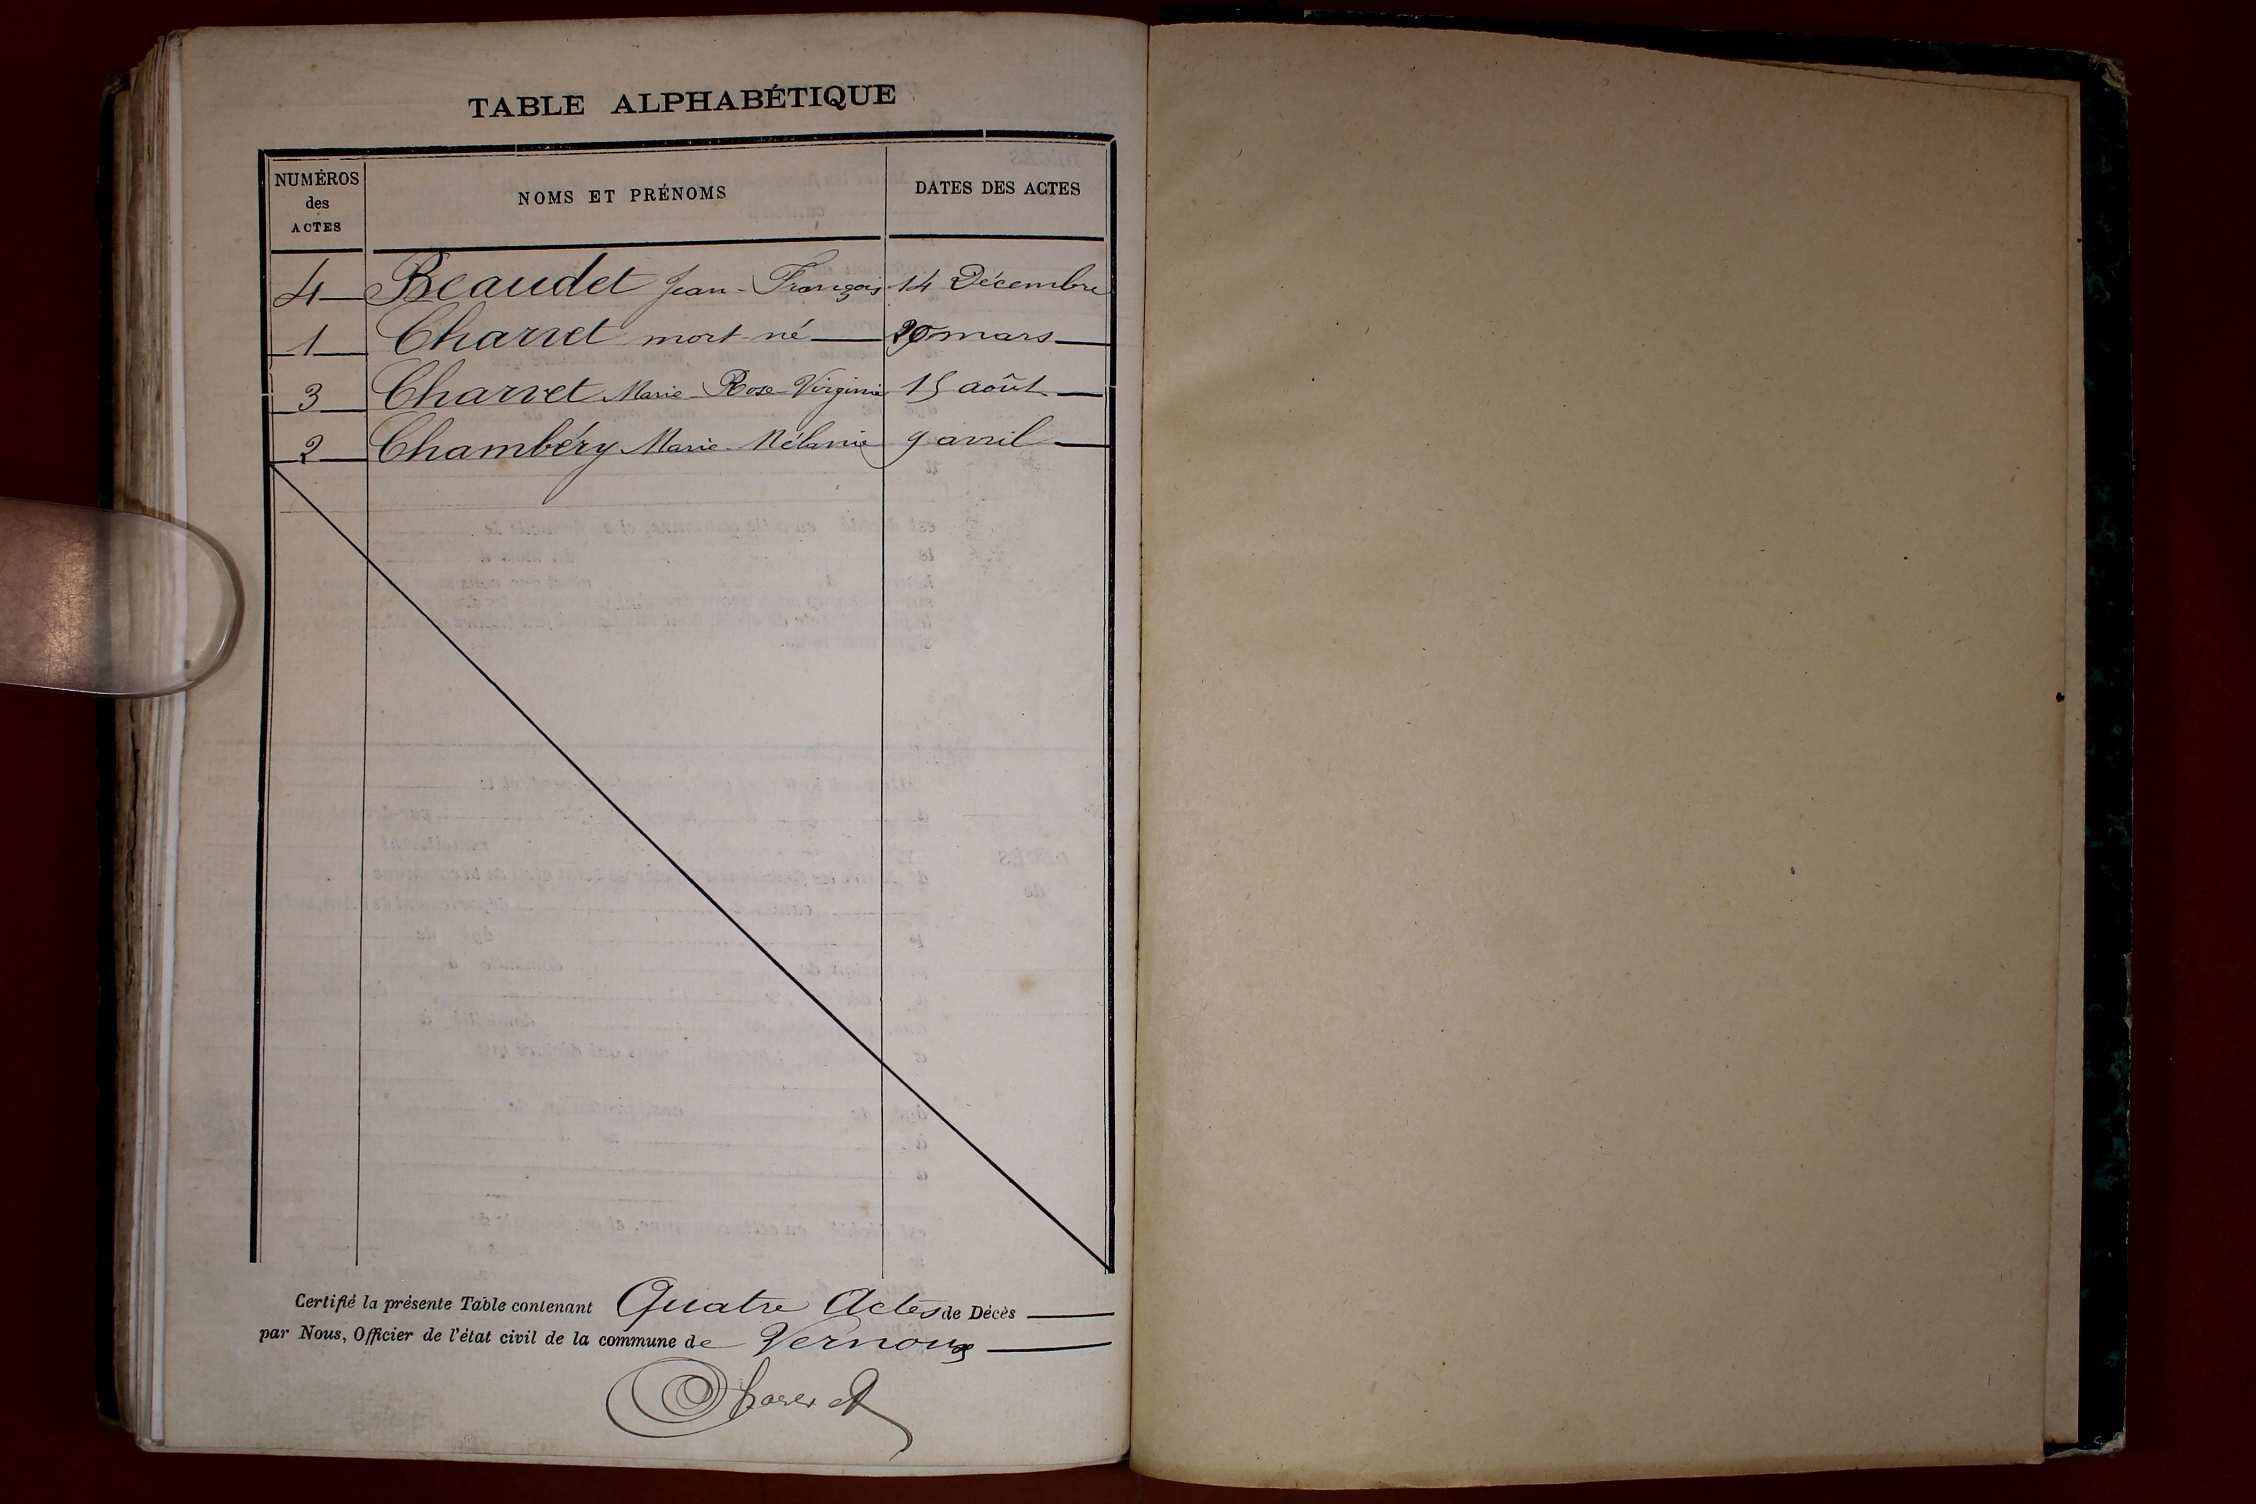 TABLE ALPHABÉTIQUE
NUMÉROS des ACTES
NOMS ET PRÉNOMS
DATES DES ACTES
4 Beaudet Jean-François 14 Décembre
1 Charvet mort-né 20 mars
3 Charvet Marie-Rose-Virginie 15 août
2 Chambéry Marie-Mélanie 9 avril
Certifié la présente Table contenant Quatre Actes de Décès
par Nous, Officier de l'état civil de la commune de Vernoux
Charvet